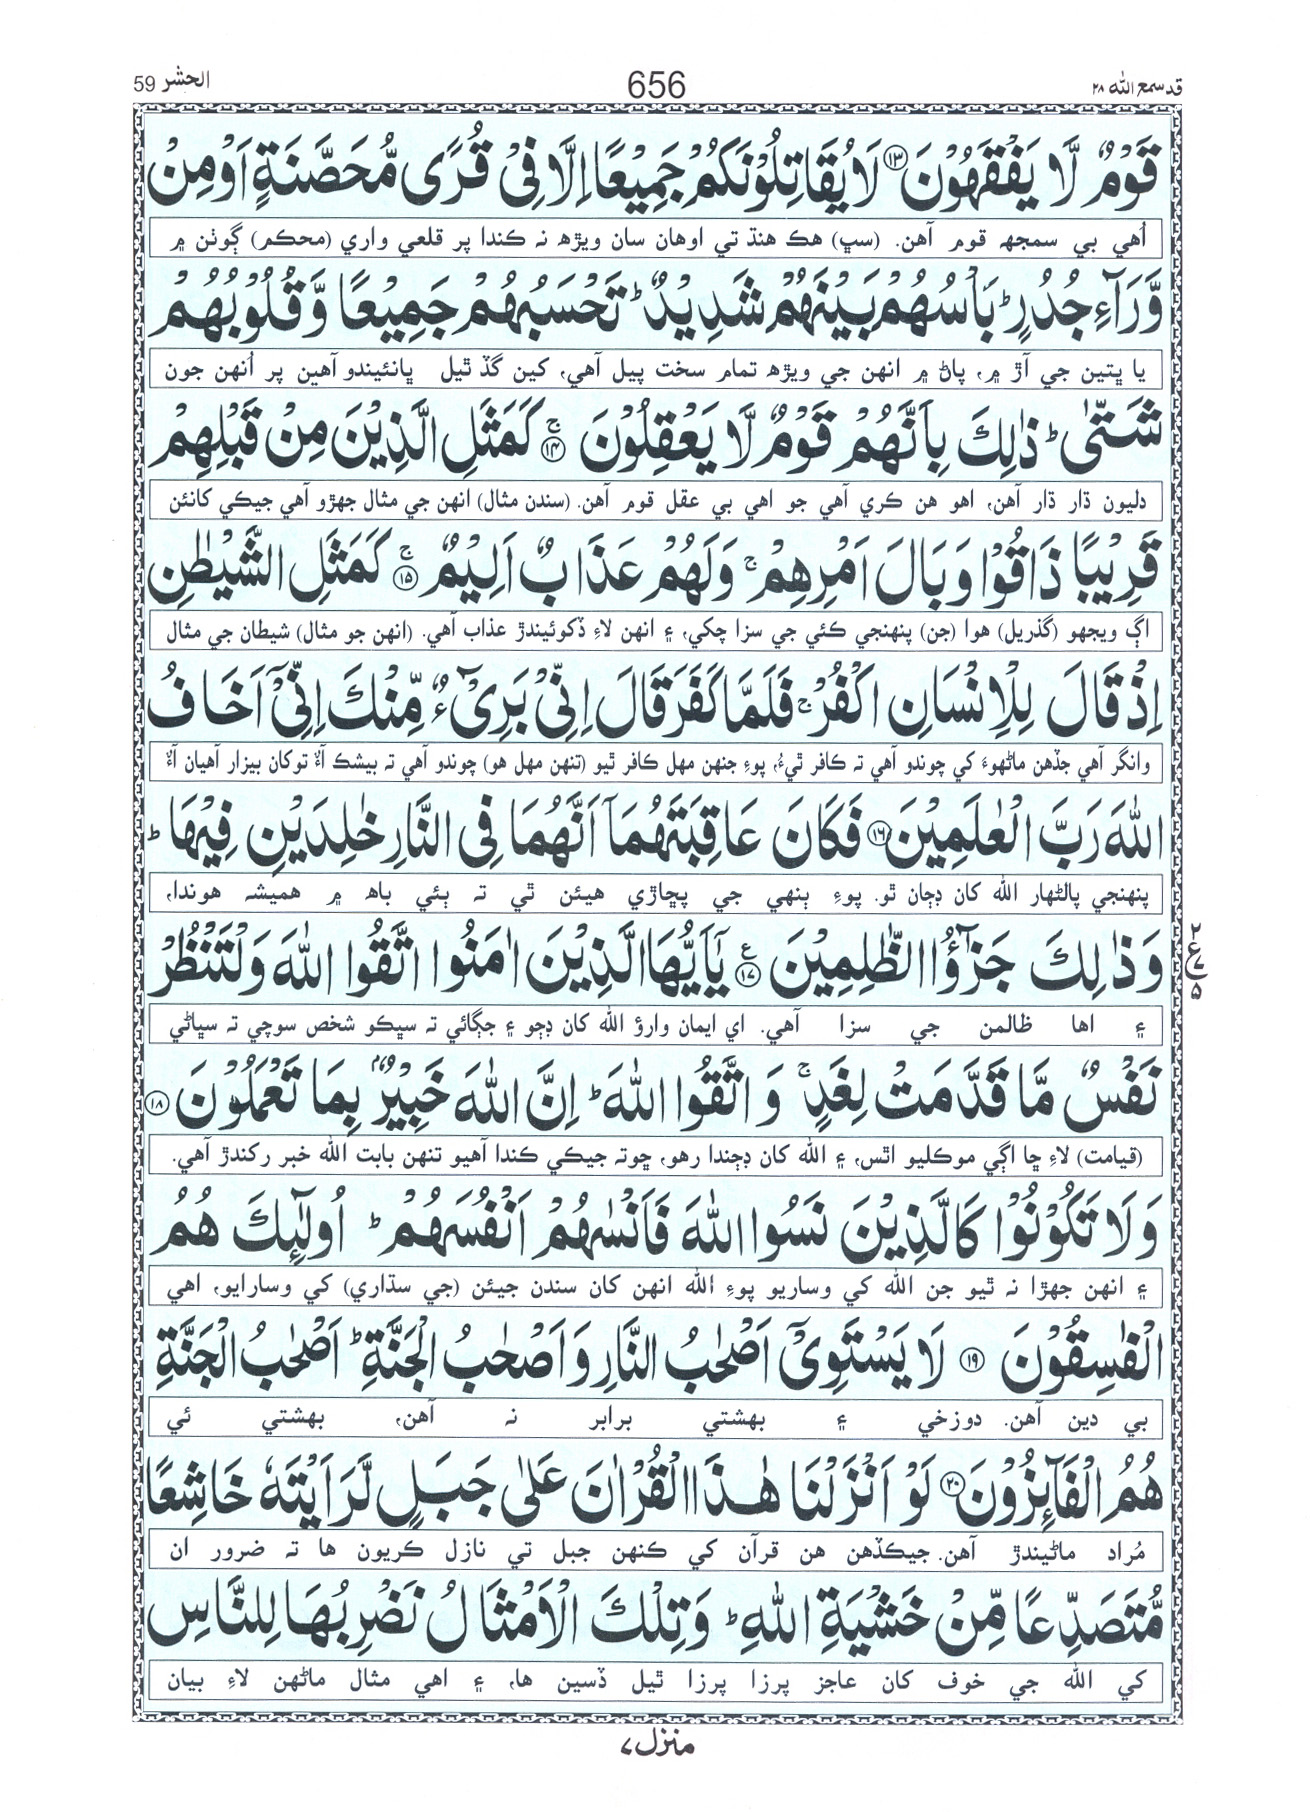 قد سمع الله ٢٨
656
الحشر 59
قَوْمٌ لَّا يَفْقَهُوْنَ ﴿١٣﴾ لَا يُقَاتِلُوْنَكُمْ جَمِيْعًا اِلَّا فِيْ قُرًى مُّحَصَّنَةٍ اَوْ مِنْ
اُهي بي سمجھ قوم آهن. (سڀ) هڪ هنڌ تي اوهان سان ويڙھ نہ ڪندا پر قلعي واري (محڪم) ڳوٺن ۾
وَّرَآءِ جُدُرٍ ؕ بَاْسُهُمْ بَيْنَهُمْ شَدِيْدٌ ؕ تَحْسَبُهُمْ جَمِيْعًا وَّقُلُوْبُهُمْ
يا ڀتين جي آڙ ۾، پاڻ ۾ انهن جي ويڙھ تمام سخت پيل آهي، کين گڏ ٿيل ڀانئيندو آهين پر اُنهن جون
شَتّٰى ؕ ذٰلِكَ بِاَنَّهُمْ قَوْمٌ لَّا يَعْقِلُوْنَ ﴿١٤﴾ ۚ كَمَثَلِ الَّذِيْنَ مِنْ قَبْلِهِمْ
دليون ڌار ڌار آهن، اهو هن ڪري آهي جو اهي بي عقل قوم آهن. (سندن مثال) انهن جي مثال جهڙو آهي جيڪي کانئن
قَرِيْبًا ذَاقُوْا وَبَالَ اَمْرِهِمْ ۚ وَلَهُمْ عَذَابٌ اَلِيْمٌ ﴿١٥﴾ ۚ كَمَثَلِ الشَّيْطٰنِ
اڳ ويجهو (گذريل) هوا (جن) پنهنجي ڪئي جي سزا چکي، ۽ انهن لاءِ ڏکوئيندڙ عذاب آهي. (انهن جو مثال) شيطان جي مثال
اِذْ قَالَ لِلْاِنْسَانِ اكْفُرْ ۚ فَلَمَّا كَفَرَ قَالَ اِنِّيْ بَرِيْٓءٌ مِّنْكَ اِنِّيْٓ اَخَافُ
وانگر آهي جڏهن ماڻهوءَ کي چوندو آهي تہ ڪافر ٿيءُ، پوءِ جنهن مهل ڪافر ٿيو (تنهن مهل هو) چوندو آهي تہ بيشڪ آءٌ توکان بيزار آهيان آءٌ
اللّٰهَ رَبَّ الْعٰلَمِيْنَ ﴿١٦﴾ فَكَانَ عَاقِبَتَهُمَآ اَنَّهُمَا فِي النَّارِ خٰلِدَيْنِ فِيْهَا ؕ
پنهنجي پالڻهار الله کان ڊڄان ٿو. پوءِ ٻنهي جي پڇاڙي هيئن ٿي تہ ٻئي باھ ۾ هميشہ هوندا،
وَذٰلِكَ جَزٰٓؤُا الظّٰلِمِيْنَ ﴿١٧﴾ ع يٰٓاَيُّهَا الَّذِيْنَ اٰمَنُوا اتَّقُوا اللّٰهَ وَلْتَنْظُرْ
٢ ع ٧ ٥
۽ اها ظالمن جي سزا آهي. اي ايمان وارؤ الله کان ڊڄو ۽ جڳائي تہ سڀڪو شخص سوچي تہ سڀاڻي
نَفْسٌ مَّا قَدَّمَتْ لِغَدٍ ۚ وَ اتَّقُوا اللّٰهَ ؕ اِنَّ اللّٰهَ خَبِيْرٌۢ بِمَا تَعْمَلُوْنَ ﴿١٨﴾
(قيامت) لاءِ ڇا اڳي موڪليو اٿس، ۽ الله کان ڊڄندا رهو، ڇوتہ جيڪي ڪندا آهيو تنهن بابت الله خبر رکندڙ آهي.
وَلَا تَكُوْنُوْا كَالَّذِيْنَ نَسُوا اللّٰهَ فَاَنْسٰىهُمْ اَنْفُسَهُمْ ؕ اُولٰٓئِكَ هُمُ
۽ انهن جهڙا نہ ٿيو جن الله کي وساريو پوءِ الله انهن کان سندن جيئن (جي سڌاري) کي وسارايو، اهي
الْفٰسِقُوْنَ ﴿١٩﴾ لَا يَسْتَوِيْٓ اَصْحٰبُ النَّارِ وَاَصْحٰبُ الْجَنَّةِ ؕ اَصْحٰبُ الْجَنَّةِ
بي دين آهن. دوزخي ۽ بهشتي برابر نہ آهن، بهشتي ئي
هُمُ الْفَآئِزُوْنَ ﴿٢٠﴾ لَوْ اَنْزَلْنَا هٰذَا الْقُرْاٰنَ عَلٰى جَبَلٍ لَّرَاَيْتَهٗ خَاشِعًا
مُراد ماڻيندڙ آهن. جيڪڏهن هن قرآن کي ڪنهن جبل تي نازل ڪريون ها تہ ضرور ان
مُّتَصَدِّعًا مِّنْ خَشْيَةِ اللّٰهِ ؕ وَتِلْكَ الْاَمْثَالُ نَضْرِبُهَا لِلنَّاسِ
کي الله جي خوف کان عاجز پرزا پرزا ٿيل ڏسين ها، ۽ اهي مثال ماڻهن لاءِ بيان
منزل ٧